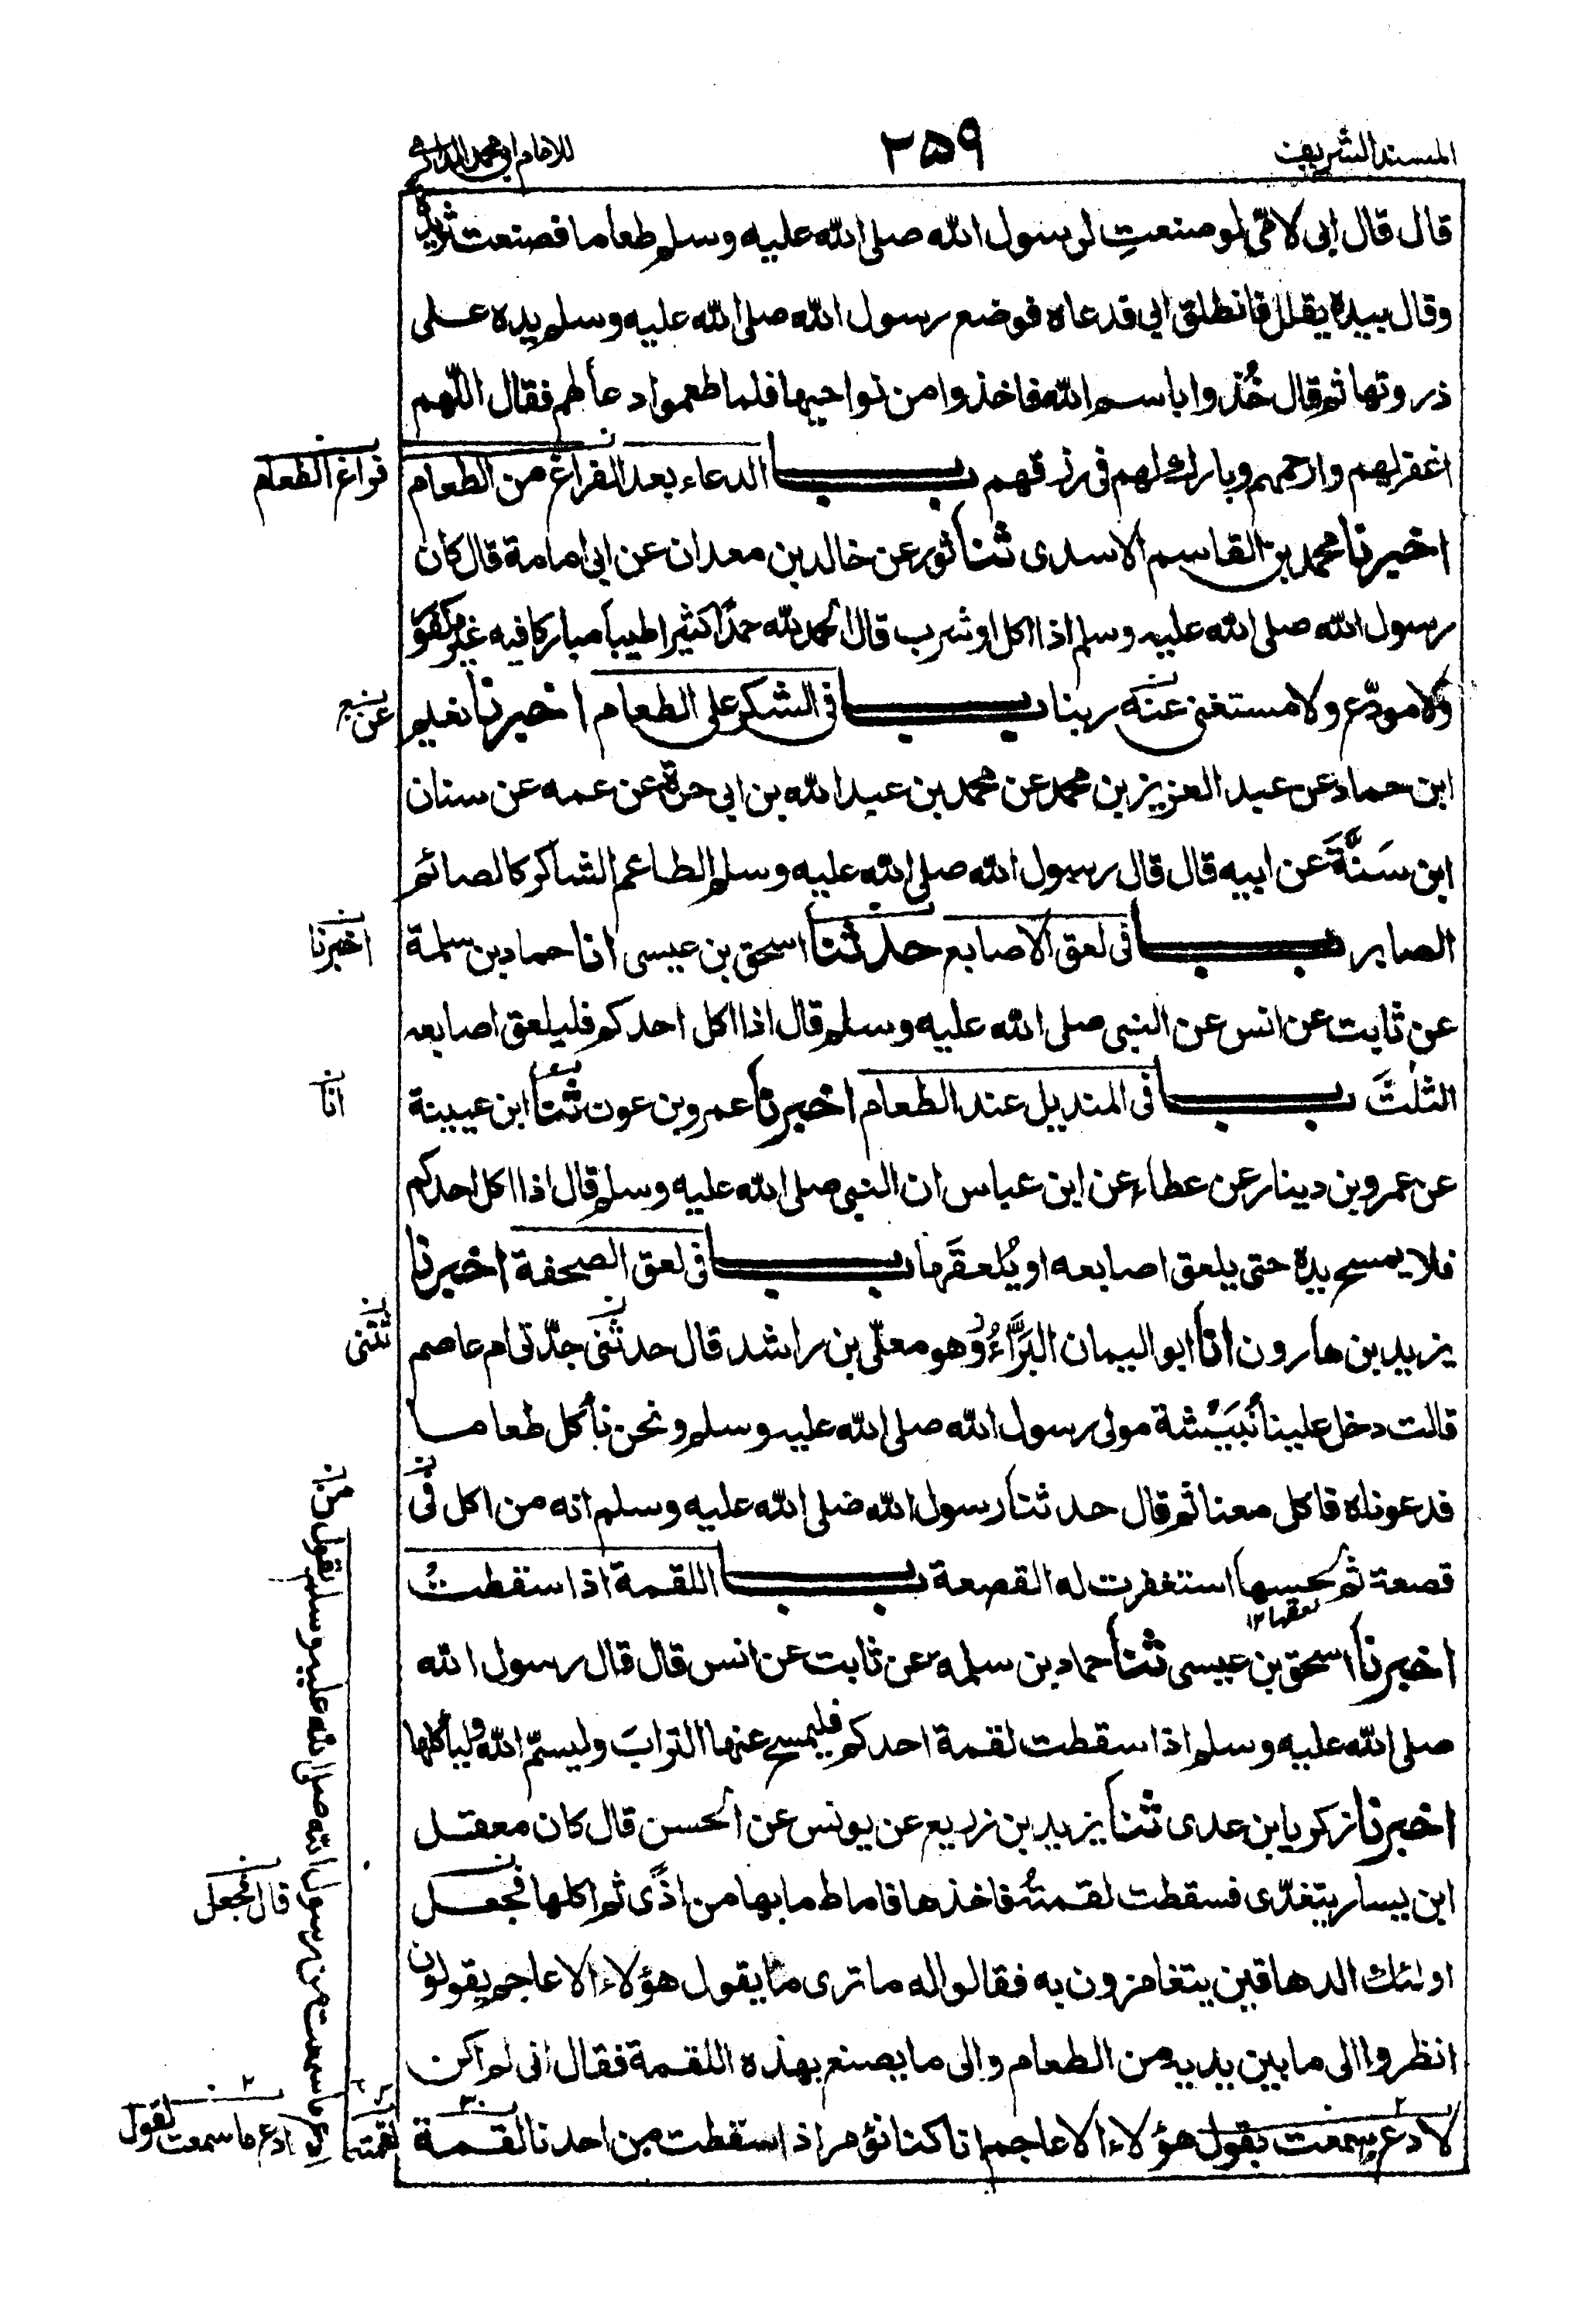 المسند الشريف
٢٥٩
للامام ابی محمد الدارمی
قال قال ابی لامی لو صنعتِ لرسول الله صلی الله علیه وسلم طعاما فصنعت ثریدۃ
وقال بیده یقلل فانطلق ابی فدعاه فوضع رسول الله صلی الله علیه وسلم یده علی
ذروتها ثم قال خُذوا باسم الله فاخذوا من نواحیها فلما طعموا دعا لهم فقال اللّٰهم
اغفر لهم وارحمهم وبارك لهم فی رزقهم باب الدعاء بعد الفراغ من الطعام
فراغ الطعام
اخبرنا محمد بن القاسم الاسدی ثنا ثور عن خالد بن معدان عن ابی امامة قال کان
رسول الله صلی الله علیه وسلم اذا اکل او شرب قال الحمد لله حمدًا کثیرا طیباً مبارکا فیه غیر مکفو
ولا مودّع ولا مستغنی عنه ربنا باب فی الشکر علی الطعام اخبرنا نعیم
عن
ابن حماد عن عبد العزیز بن محمد عن محمد بن عبد الله بن ابی حرة عن عمه عن سنان
ابن سَنَّةَ عن ابیه قال قال رسول الله صلی الله علیه وسلم الطاعم الشاکر کالصائم
الصابر باب فی لعق الاصابع حدثنا اسحق بن عیسی انا حماد بن سلمة
اخبرنا
عن ثابت عن انس عن النبی صلی الله علیه وسلم قال اذا اکل احدکم فلیلعق اصابعه
الثلٰث باب فی المندیل عند الطعام اخبرنا عمرو بن عون ثنا ابن عیینة
انا
عن عمرو بن دینار عن عطاء عن ابن عباس ان النبی صلی الله علیه وسلم قال اذا اکل احدکم
فلا یمسح یده حتی یلعق اصابعه او یُلعقَها باب فی لعق الصحفة اخبرنا
یزید بن هارون انا ابو الیمان البَرَّاءُ وهو معلّی بن راشد قال حدثنی جدّتی ام عاصم
ثتنی
قالت دخل علینا نُبَیْشة مولی رسول الله صلی الله علیه وسلم ونحن نأکل طعاما
فدعوناه فاکل معنا ثم قال حدثنا رسول الله صلی الله علیه وسلم انه من اکل فی
قصعة ثم لحسها استغفرت له القصعة باب اللقمة اذا سقطت
لعقها ١٢
اخبرنا اسحق بن عیسی ثنا حماد بن سلمة عن ثابت عن انس قال قال رسول الله
صلی الله علیه وسلم اذا سقطت لقمة احدکم فلیمسح عنها التراب ولیسمّ الله ولیأکلها
اخبرنا زکریا بن عدی ثنا یزید بن زریع عن یونس عن الحسن قال کان معقل
ابن یسار یتغدّی فسقطت لقمتهُ فاخذها فاماط ما بها من اذًی ثم اکلها فجعل
قال فجعل
اولئك الدهاقین یتغامزون به فقالوا له ما تری ما یقول هؤلاء الاعاجم یقولون
انظروا الی ما بین یدیه من الطعام والی ما یصنع بهذه اللقمة فقال انی لم اکن
لادع ما سمعت بقول هؤلاء الاعاجم انا کنا نؤمر اذا سقطت من احدنا لقمة
لقمته
ادع ما سمعت لقول
ما سمعت من رسول الله صلی الله علیه وسلم بقول